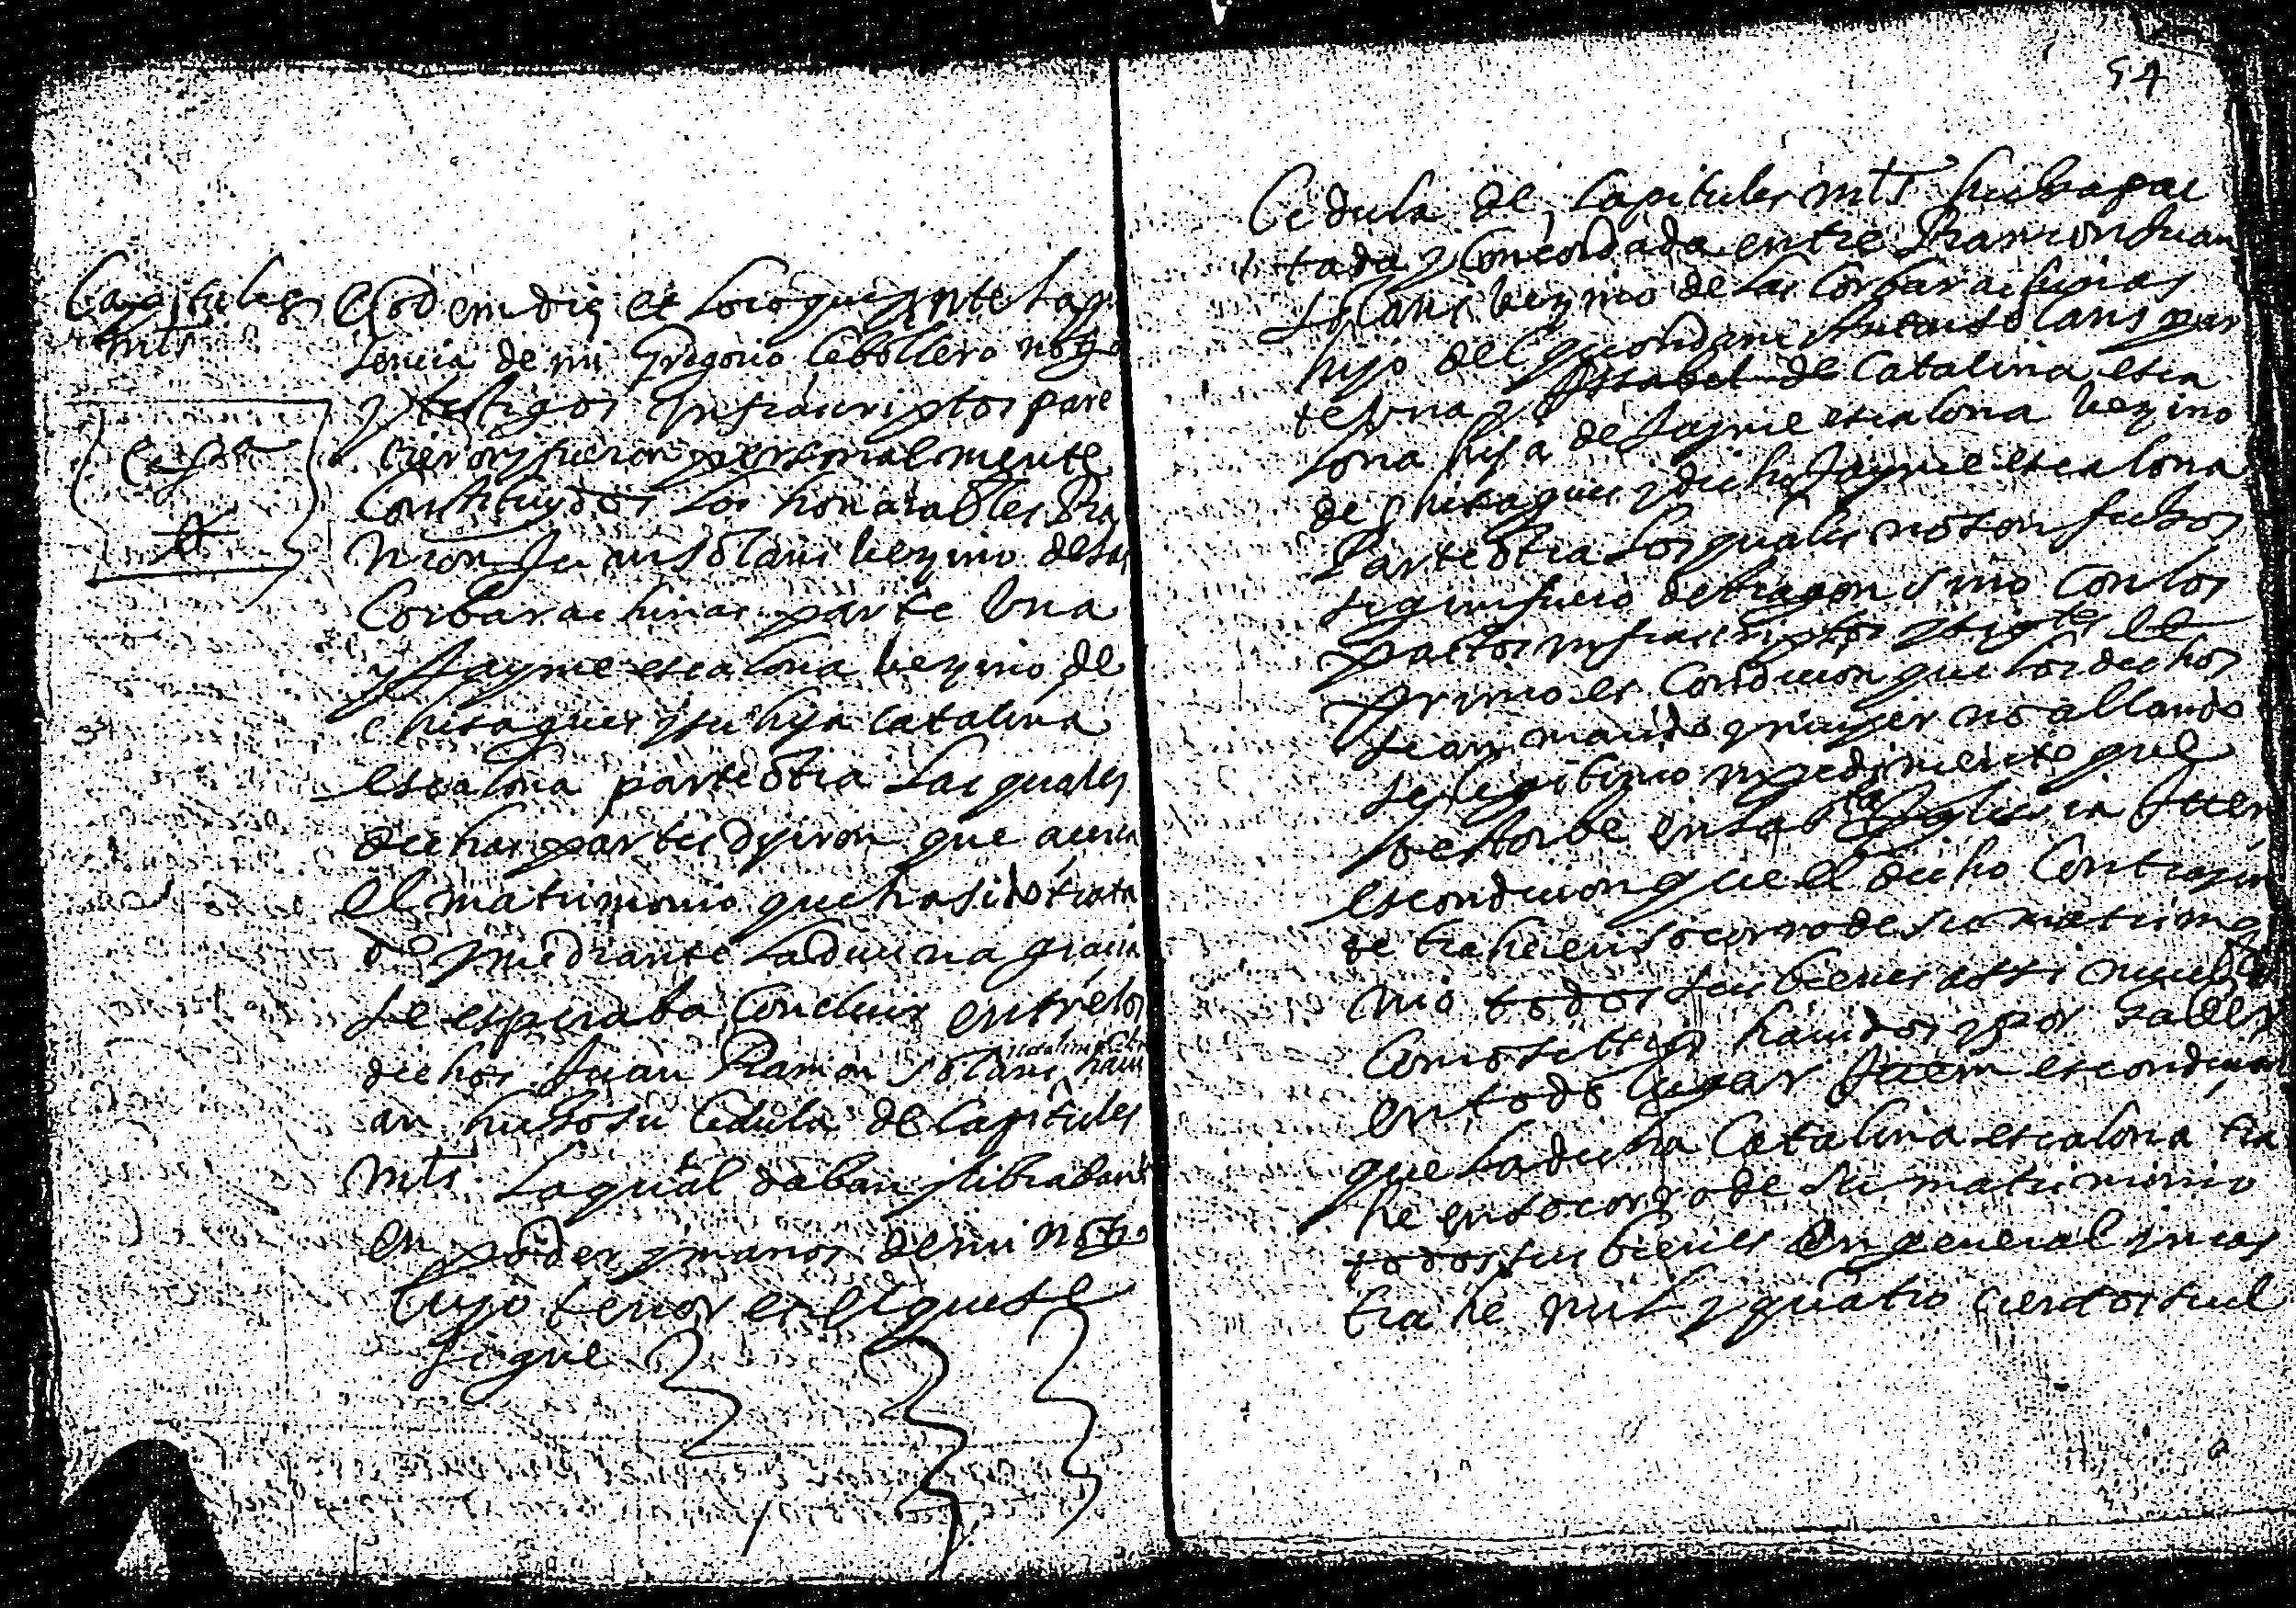 Capitules
mts
Eodem die et loco que ante la pre
sencia de mi Gregorio Cebollero notº
y testigos Infrascriptos pare
cieron y fueron personalmente
Constituydos los honorables Ra
mon Juan Solans vezino de las
Corbarachinas parte Una
y Jayme escalona vezino de
chisagues y su hija Catalina
escalona parte otra Las quales
dichas partes dixeron que acerca
el matrimonio que ha sido trata
do y mediante la divina gracia
se esperaba Concluir entre los
dichos Juan Ramon Solans
an hecho su Cedula de Capitules
mts La qual daban y libraban
en poder y manos de mi notº
Cuyo tenor es el que se
sigue
54
Cedula de Capitules mts hecha pac
tada y Concordada entre Ramon Juan
Solans vezino de las Corbarachinas
hijo del quondam Solans par
te Una y Issabel de Catalina esca
lona hija de Jayme escalona vezino
de chisagues y dicho Jayme escalona
Parte otra Los quales no son fechos
segun fuero de Aragon sino Con los
pactos infrascriptos y sigtes Et
primo es Condicion que los dichos
sean marido y muger no allando
se legitimo impedimento que
lo estorbe en la sta Iglesia Item
es condicion que el dicho Contrayen
te trahe en socorro de su matrimo
nio todos sus bienes assi muebles
Como sittios havidos y por haber
en todo lugar Item es condicion
que la dicha Catalina escalona tra
he en socorro de su matrimonio
todos sus bienes En general y mas
trahe mil y quatro cientos suel